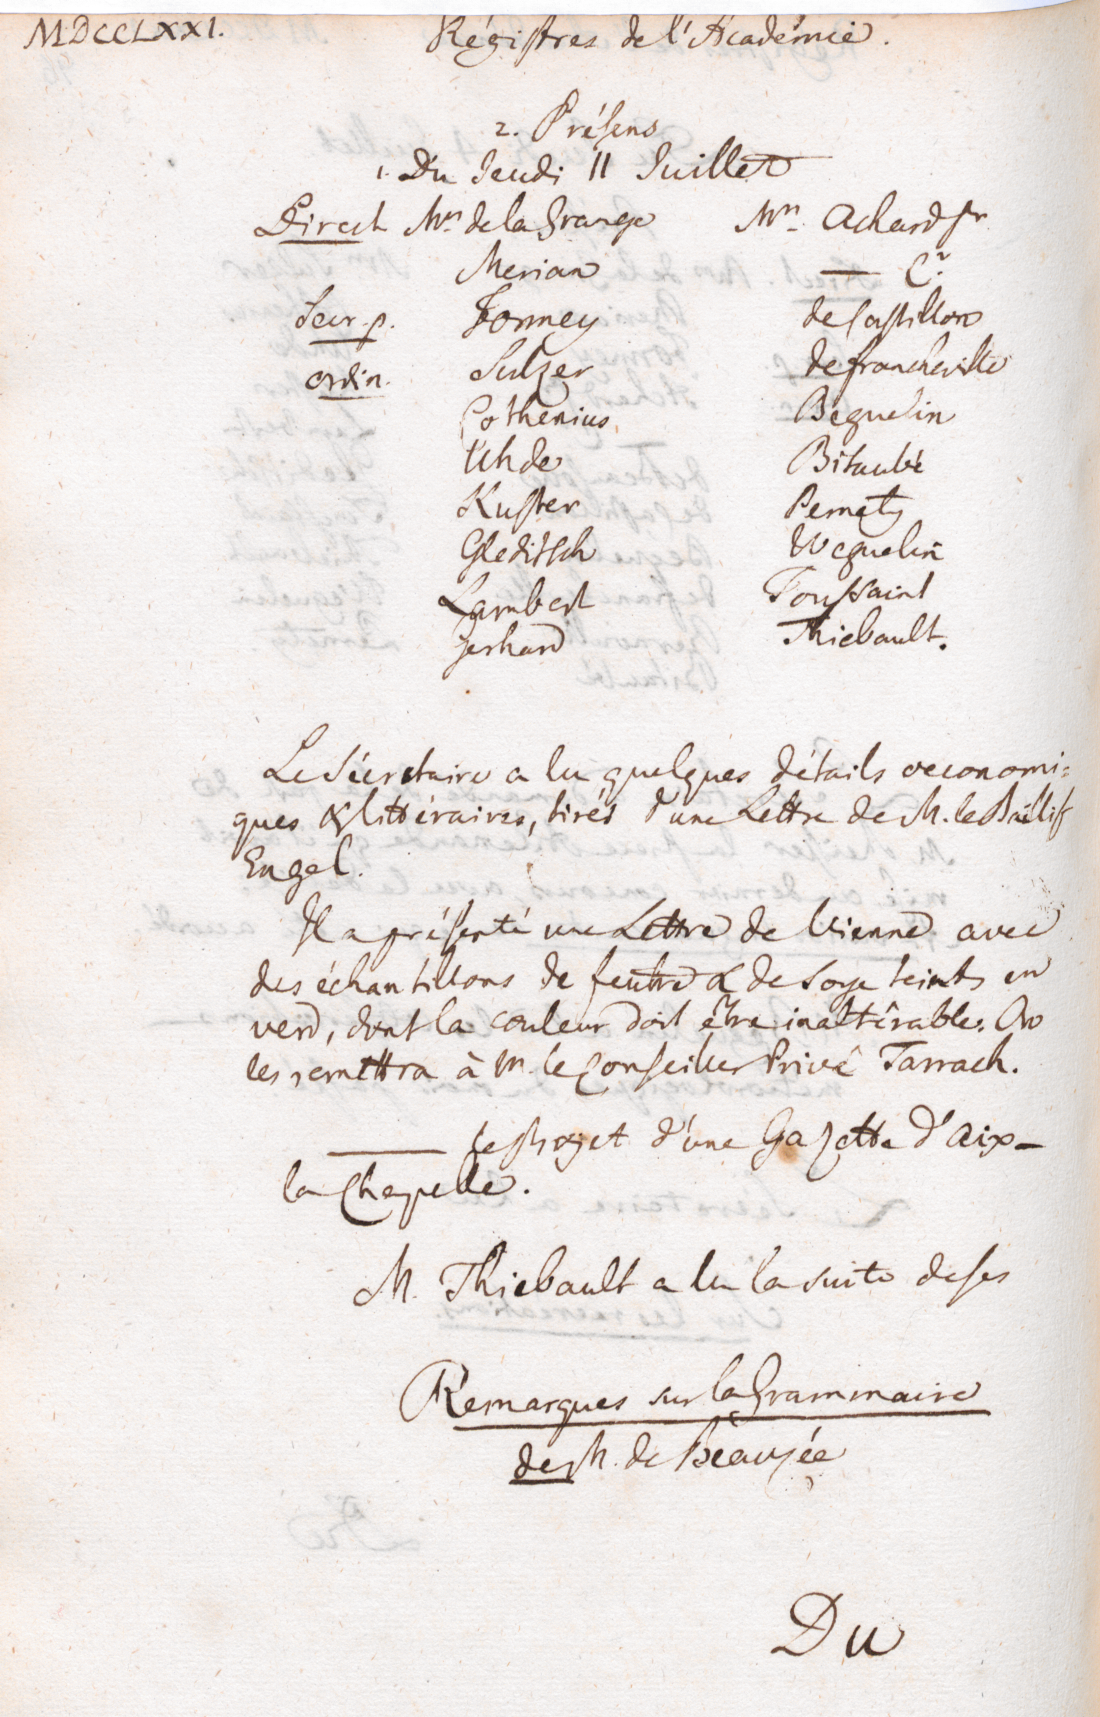 MDCCLXXI. Régistres de l'Académie.
2. Présens
1. Du Jeudi 11 Juillet
Direct Mrs. de la Grange
Merian
Secr. p. Formey
ordin. Sulzer
Cothenius
Uhde
Kuster
Gleditsch
Lambert
Gerhard
Mrs. Achard pr
— C.r
de Castillon
de francheville
Béguelin
Bitaubé
Pernety
Weguelin
Toussaint
Thiebault.
Le Sécretaire a lu quelques détails oeconomi-
ques & littéraires, tirés d'une Lettre de M. le Baillif
Engel.
Il a présenté une Lettre de Vienne avec
des échantillons de feutre & de soye teints en
verd, dont la couleur doit être inaltérable. On
les remettra à M. le Conseiller Privé Tarrach.
——— le Projet d'une Gazette d'Aix-
la Chapelle.
M. Thiebault a lu la suite de ses
Remarques sur la Grammaire
de M. de Beauzée
Du